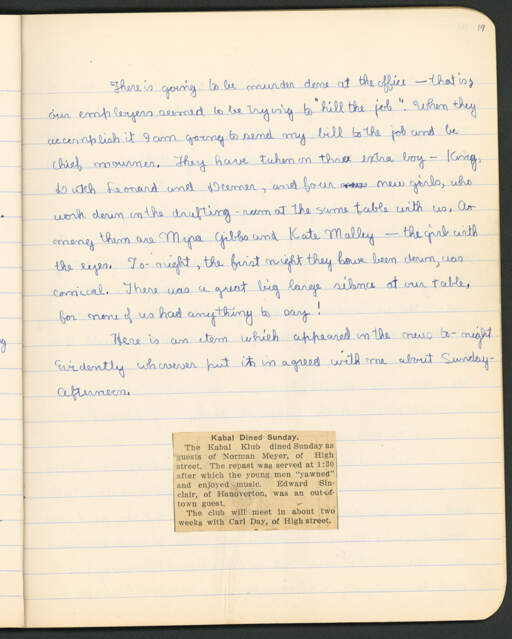 19
There is going to be murder done at the office — that is,
our employers seemed to be trying to "kill the job". When they
accomplish it I am going to send my bill to the job and be
chief mourner. They have taken on three extra boy — King,
Dutch Leonard and Derner, and four new girls, who
work down in the drafting-room at the same table with us. A-
mong them are Myra Gibbs and Kate Malley — the girl with
the eyes. To-night, the first night they have been down, was
comical. There was a great big large silence at our table,
for none of us had anything to say!
Here is an item which appeared in the news to-night
Evidently whoever put it in agreed with me about Sunday-
afternoon.
Kabal Dined Sunday.
The Kabal Klub dined Sunday as
guests of Norman Meyer, of High
street. The repast was served at 1:30
after which the young men "yawned"
and enjoyed music. Edward Sin-
clair, of Hanoverton, was an out-of-
town guest.
The club will meet in about two
weeks with Carl Day, of High street.